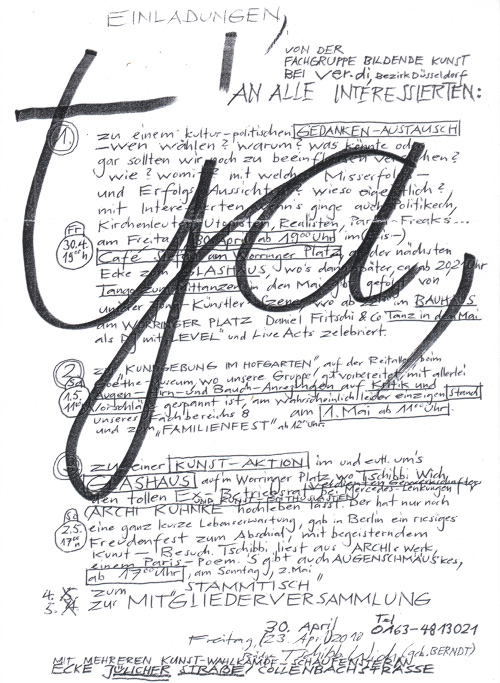 EINLADUNGEN,
VON DER
FACHGRUPPE BILDENDE KUNST
BEI ver.di, Bezirk Düsseldorf
AN ALLE INTERESSIERTEN:
tja,
1. zu einem kultur-politischen GEDANKEN-AUSTAUSCH
- wen wählen? warum? was könnte od
gar sollten wir noch zu beeinflussen versuchen?
wie? womit? mit welch. Misserfolg-
und Erfolgs-Aussichten? wieso eigentlich?,
mit Interessierten, wenn's ginge auch Politikern,
Kirchenleuten, Utopisten, Realisten,
Fr 30.4. 19⁰⁰ h
am Freitag 30. April ab 19⁰⁰ Uhr im
Café am Worringer Platz, der nächsten
Ecke zum GLASHAUS, wo's dann später, ca. ab 20
Tango zum Mittanzen in den Mai gefolgt von
unserer Künstler-Szene, wo ab im BAUHAUS
am WORRINGER PLATZ Daniel Fritschi & Co Tanz in den Mai
als DJ mit "LEVEL" und Live Acts zelebriert.
2. zur "KUNDGEBUNG IM HOFGARTEN" auf der Reitallee beim
Sa 1.5. 11⁰⁰
Goethe-Museum, wo unsere Gruppe, gut vorbereitet, mit allerlei
Augen-, Hirn- und Bauch-Anregungen auf Kritik und
Vorschläge gespannt ist, am wahrscheinlich leider einzigen Stand
unseres Fachbereichs 8 am 1. Mai ab 11⁰⁰ Uhr.
und zum "FAMILIENFEST" ab 12⁰⁰ Uhr.
3. zu einer KUNST-AKTION im und zutl. um's
GLASHAUS auf'm Worringer Platz, wo Tschibbi Wich,
den tollen Ex-Betriebsrat bei Mercedes-Lenkungen
ARCHI KUHNKE hochleben lässt. Der hat nur noch
So 2.5. 17⁰⁰
eine ganz kurze Lebenserwartung, gab in Berlin ein riesiges
Freudenfest zum Abschied, mit begeisterndem
Kunst-Besuch. Tschibbi liest aus ARCHIs Werk,
einem Paris-Poem. S'gibt auch AUGENSCHMAUSkes,
ab 17⁰⁰ Uhr, am Sonntag, 2. Mai
4. zum "STAMMTISCH"
5. zur MITGLIEDERVERSAMMLUNG
30. April
Freitag, 23. April 2010
Tel 0163-4813021
Tschibbi Wich (geb. BERNDT)
MIT MEHREREN KUNST-WAHLKAMPF-SCHAUFENSTERN
ECKE JÜLICHER STRAßE/COLLENBACHSTRASSE